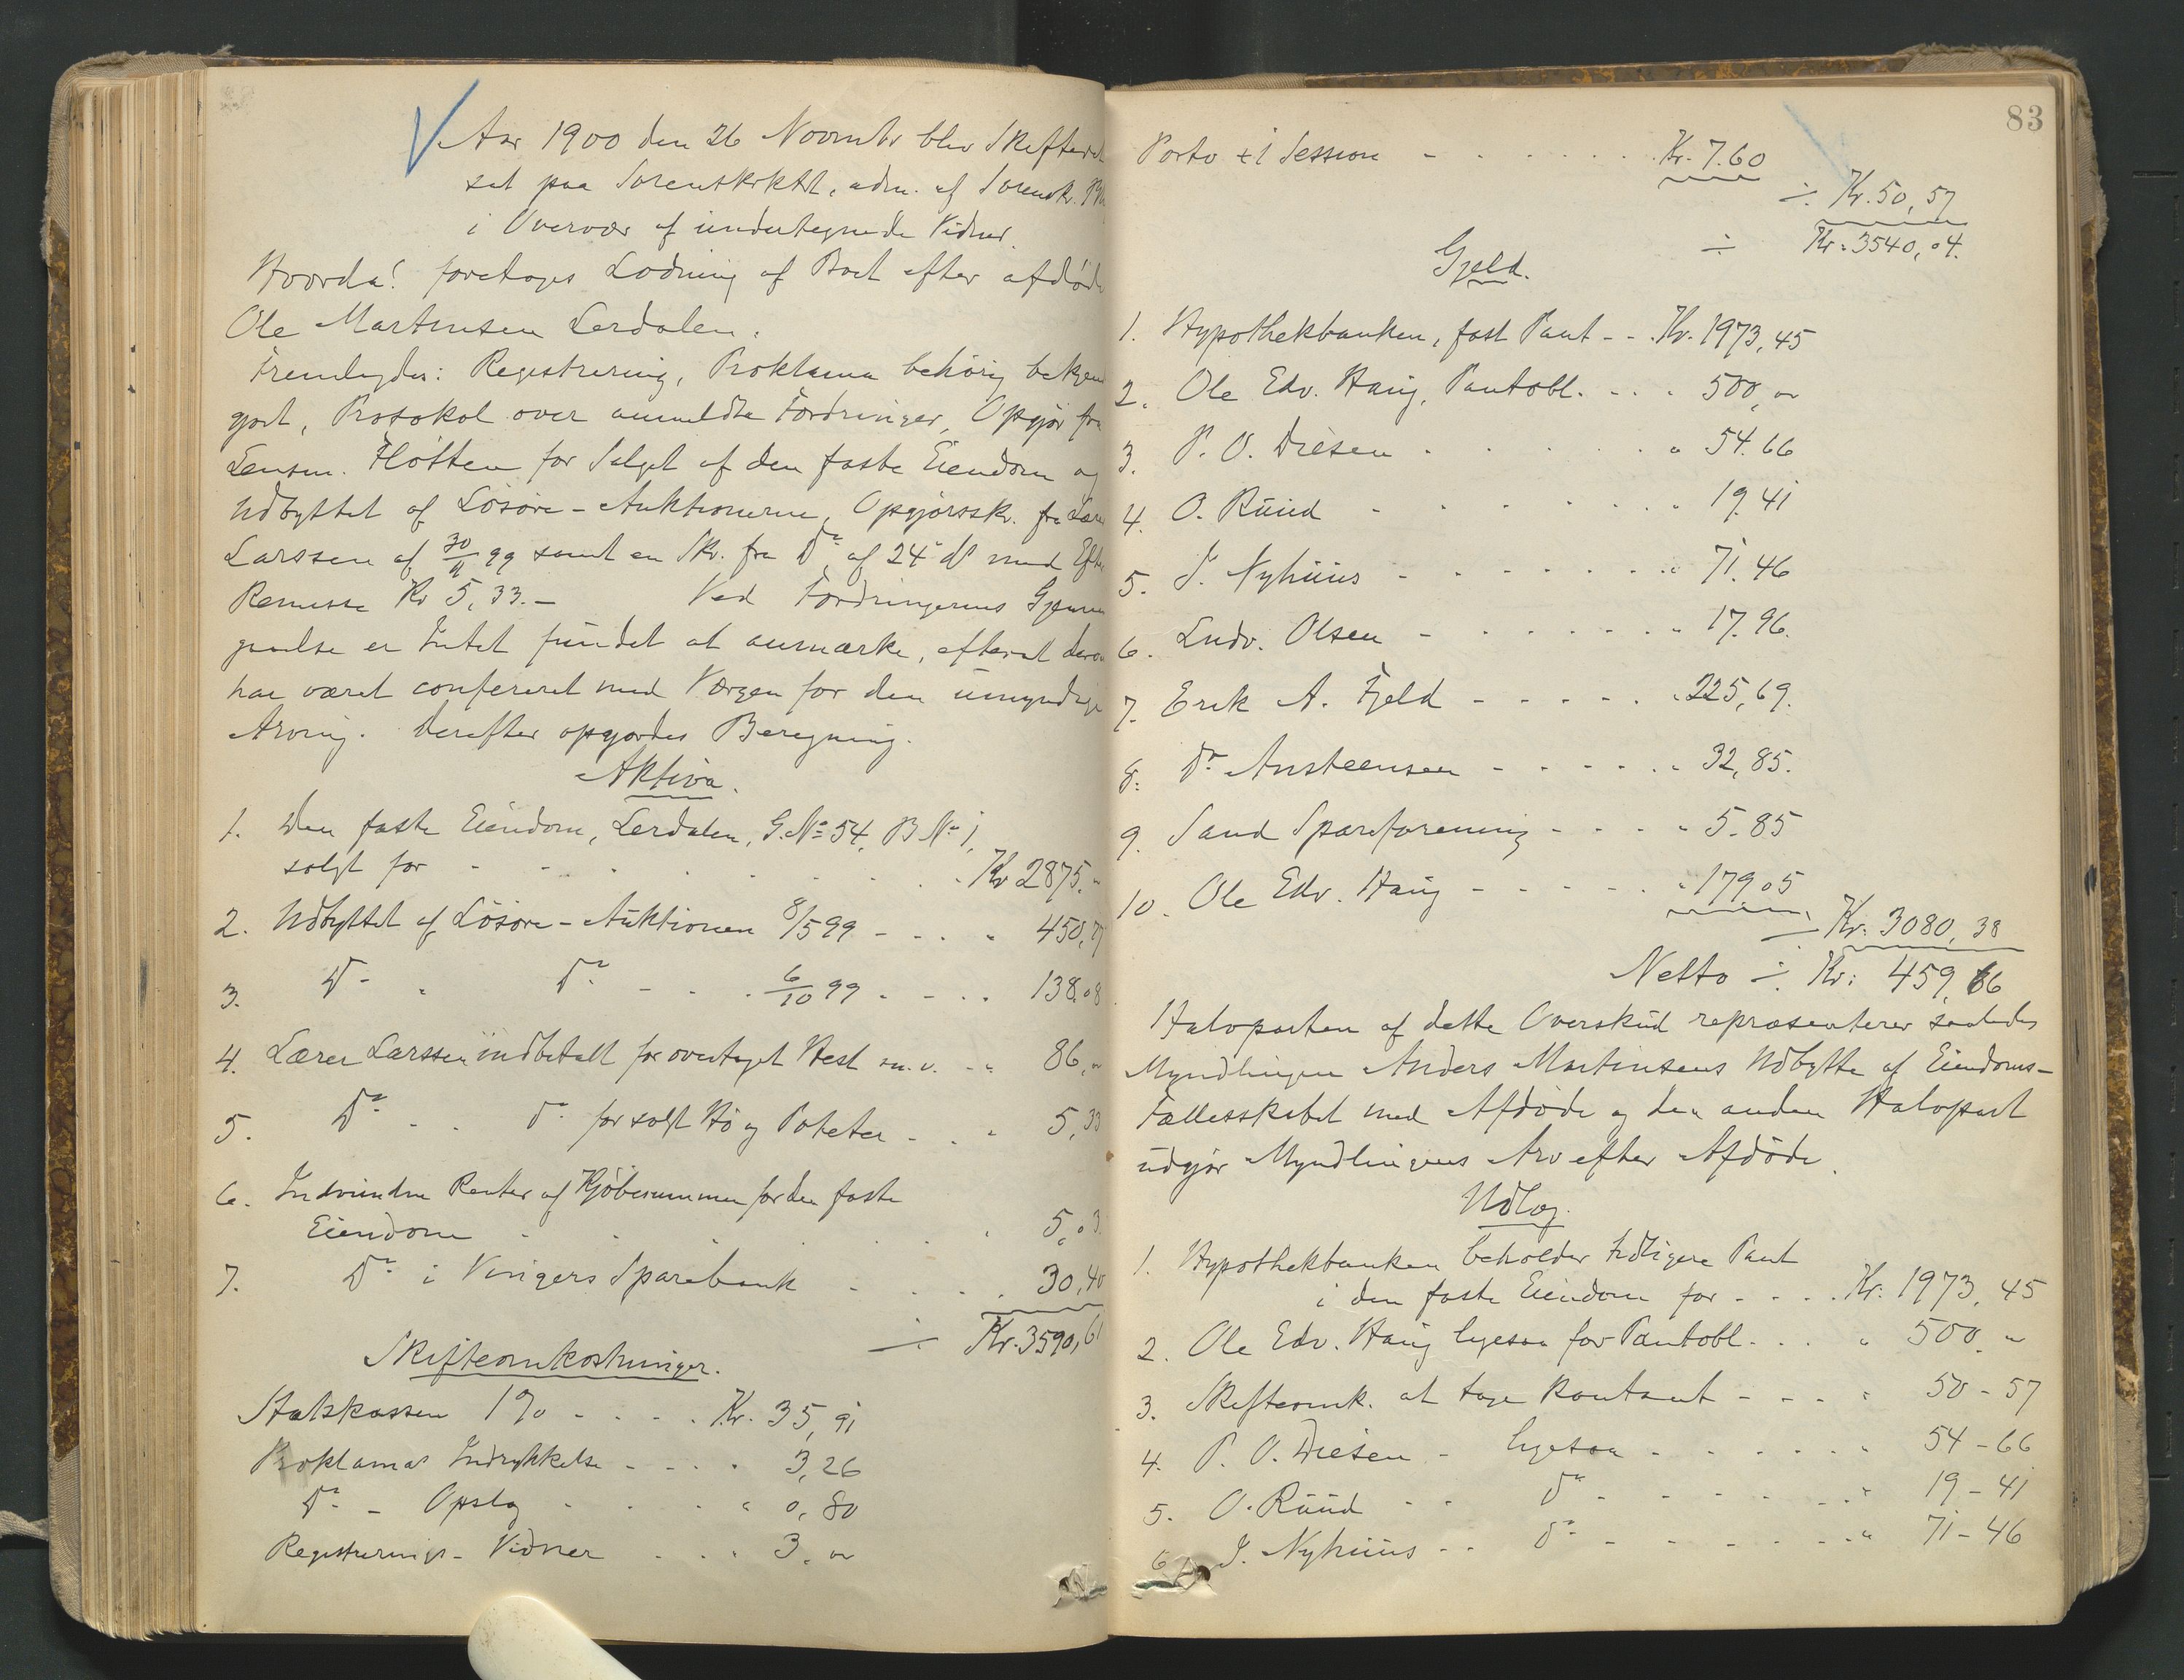 Aar 1900 den 26 Novembr blev Skifteret
sat paa Sorenskrktrt, adm. af Sorenskr.
i Overvær af undertegnede Vidner.
Hvorda! foretoges Lodning af Boet efter afdøde
Ole Martinsen Lerdalen.
Fremlagdes: Registrering, Proklama behørig bekjend
gjort, Protokol over anmeldte Fordringer, Opgjør fra
Lensm. Fløtten for Salget af den faste Eiendom og
Udbyttet af Løsøre-Auktionerne, Opgjørsskr. fra Lærer
Larssen af 30/11 99 samt en Skr. fra Do af 24 ds med
Remisse Kr 5,33.- Ved Fordringernes Gjennem
gaaelse er Intet fundet at anmærke, efterat derom
har været confereret med Værgen for den umyndige
Arving. Derefter opgjordes Beregning.
Aktiva.
1. Den faste Eiendom, Lerdalen, G.No 54, B No 1,
solgt for - - - Kr 2875.„
2. Udbyttet af Løsøre-Auktionen 8/5 99 - - - „ 450,77
3. Do „ Do - - - 6/10 99 - - - 138.08
4. Lærer Larssen indbetalt for overtaget Hest m.v. - „ 86,„
5. Do - - Do for solgt Hø og Poteter - - „ 5,33
6. Indvundne Renter af Kjøbesummen for den faste
Eiendom - - - „ 5,03
7. Do i Vingers Sparebank - - - 30,40
÷ Kr. 3590,61
Skifteomkostninger.
Statskassen 1% - - - - Kr. 35,91
Proklamas Indrykkelse - - - „ 3,26
Do - Opslag - - - „ 0,80
Registrerings-Vidner - - - „ 3.„
83
Porto + 1 Session - - - Kr. 7.60
÷ Kr. 50,57
÷ Kr. 3540,04.
Gjeld.
1. Hypothekbanken, fast Pant - - Kr. 1973,45
2. Ole Edv. Haug, Pantobl. - - „ 500,„
3. P. O. Diesen - - - „ 54.66
4. O. Ruud - - - „ 19.41
5. J. Nyhuus - - - „ 71.46
6. Ludv. Olsen - - - „ 17.96.
7. Erik A. Fjeld - - - „ 225,69.
8. Dr Ansteensen - - - „ 32,85.
9. Sand Spareforening - - - „ 5.85
10. Ole Edv. Haug - - - „ 179.05
÷ Kr. 3080,38
Netto ÷ Kr: 459,66
Halvparten af dette Overskud repræsenterer saaledes
Myndlingen Anders Martinsens Udbytte af Eiendoms-
Fællesskabet med Afdøde og den anden Halvpart
udgjør Myndlingens Arv efter Afdøde.
Udlæg.
1. Hypothekbanken beholder tidligere Pant
i den faste Eiendom for - - - Kr. 1973,45
2. Ole Edv. Haug ligesaa for Pantobl. - - „ 500.„
3. Skifteomk. at tage kontant - - - „ 50-57
4. P. O. Diesen - ligesaa - - - „ 54-66
5. O. Ruud - - Do - - - „ 19-41
6. J. Nyhuus - - Do - - - „ 71-46